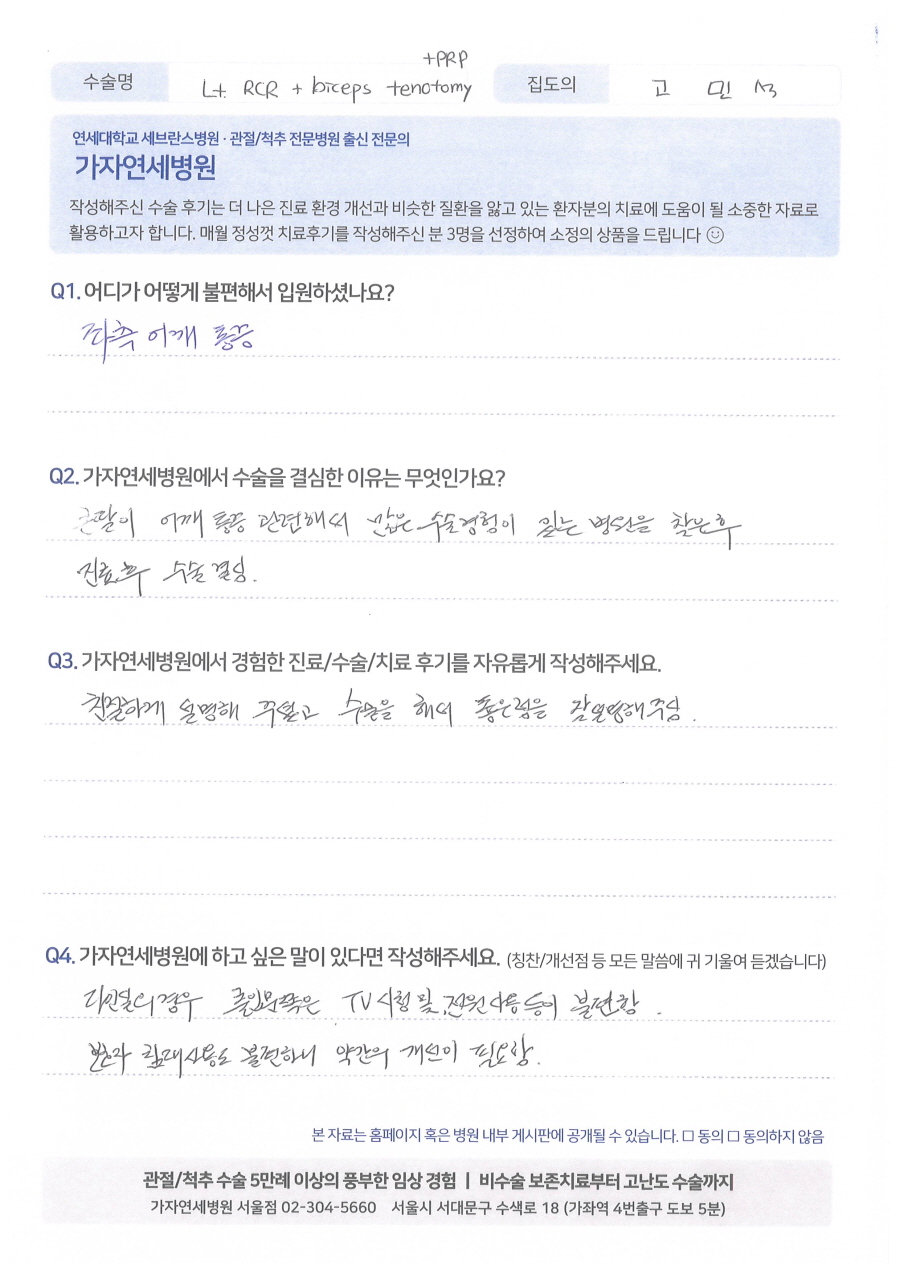 +PRP
수술명 Lt. RCR + biceps tenotomy 집도의 고 민 석
연세대학교 세브란스병원 · 관절/척추 전문병원 출신 전문의
가자연세병원
작성해주신 수술 후기는 더 나은 진료 환경 개선과 비슷한 질환을 앓고 있는 환자분의 치료에 도움이 될 소중한 자료로
활용하고자 합니다. 매월 정성껏 치료후기를 작성해주신 분 3명을 선정하여 소정의 상품을 드립니다
Q1. 어디가 어떻게 불편해서 입원하셨나요?
좌측 어깨 통증
Q2. 가자연세병원에서 수술을 결심한 이유는 무엇인가요?
큰딸이 어깨 통증 관련해서 많은 수술경험이 있는 병원을 찾은후
진료후 수술 결심.
Q3. 가자연세병원에서 경험한 진료/수술/치료 후기를 자유롭게 작성해주세요.
친절하게 설명해 주셨고 수술을 해서 좋은점을 잘설명해주심.
Q4. 가자연세병원에 하고 싶은 말이 있다면 작성해주세요. (칭찬/개선점 등 모든 말씀에 귀 기울여 듣겠습니다)
다인실의경우 출입문쪽은 TV시청 및 전원사용등이 불편함.
침대사용도 불편하니 약간의 개선이 필요함.
본 자료는 홈페이지 혹은 병원 내부 게시판에 공개될 수 있습니다. □ 동의 □ 동의하지 않음
관절/척추 수술 5만례 이상의 풍부한 임상 경험 | 비수술 보존치료부터 고난도 수술까지
가자연세병원 서울점 02-304-5660 서울시 서대문구 수색로 18 (가좌역 4번출구 도보 5분)